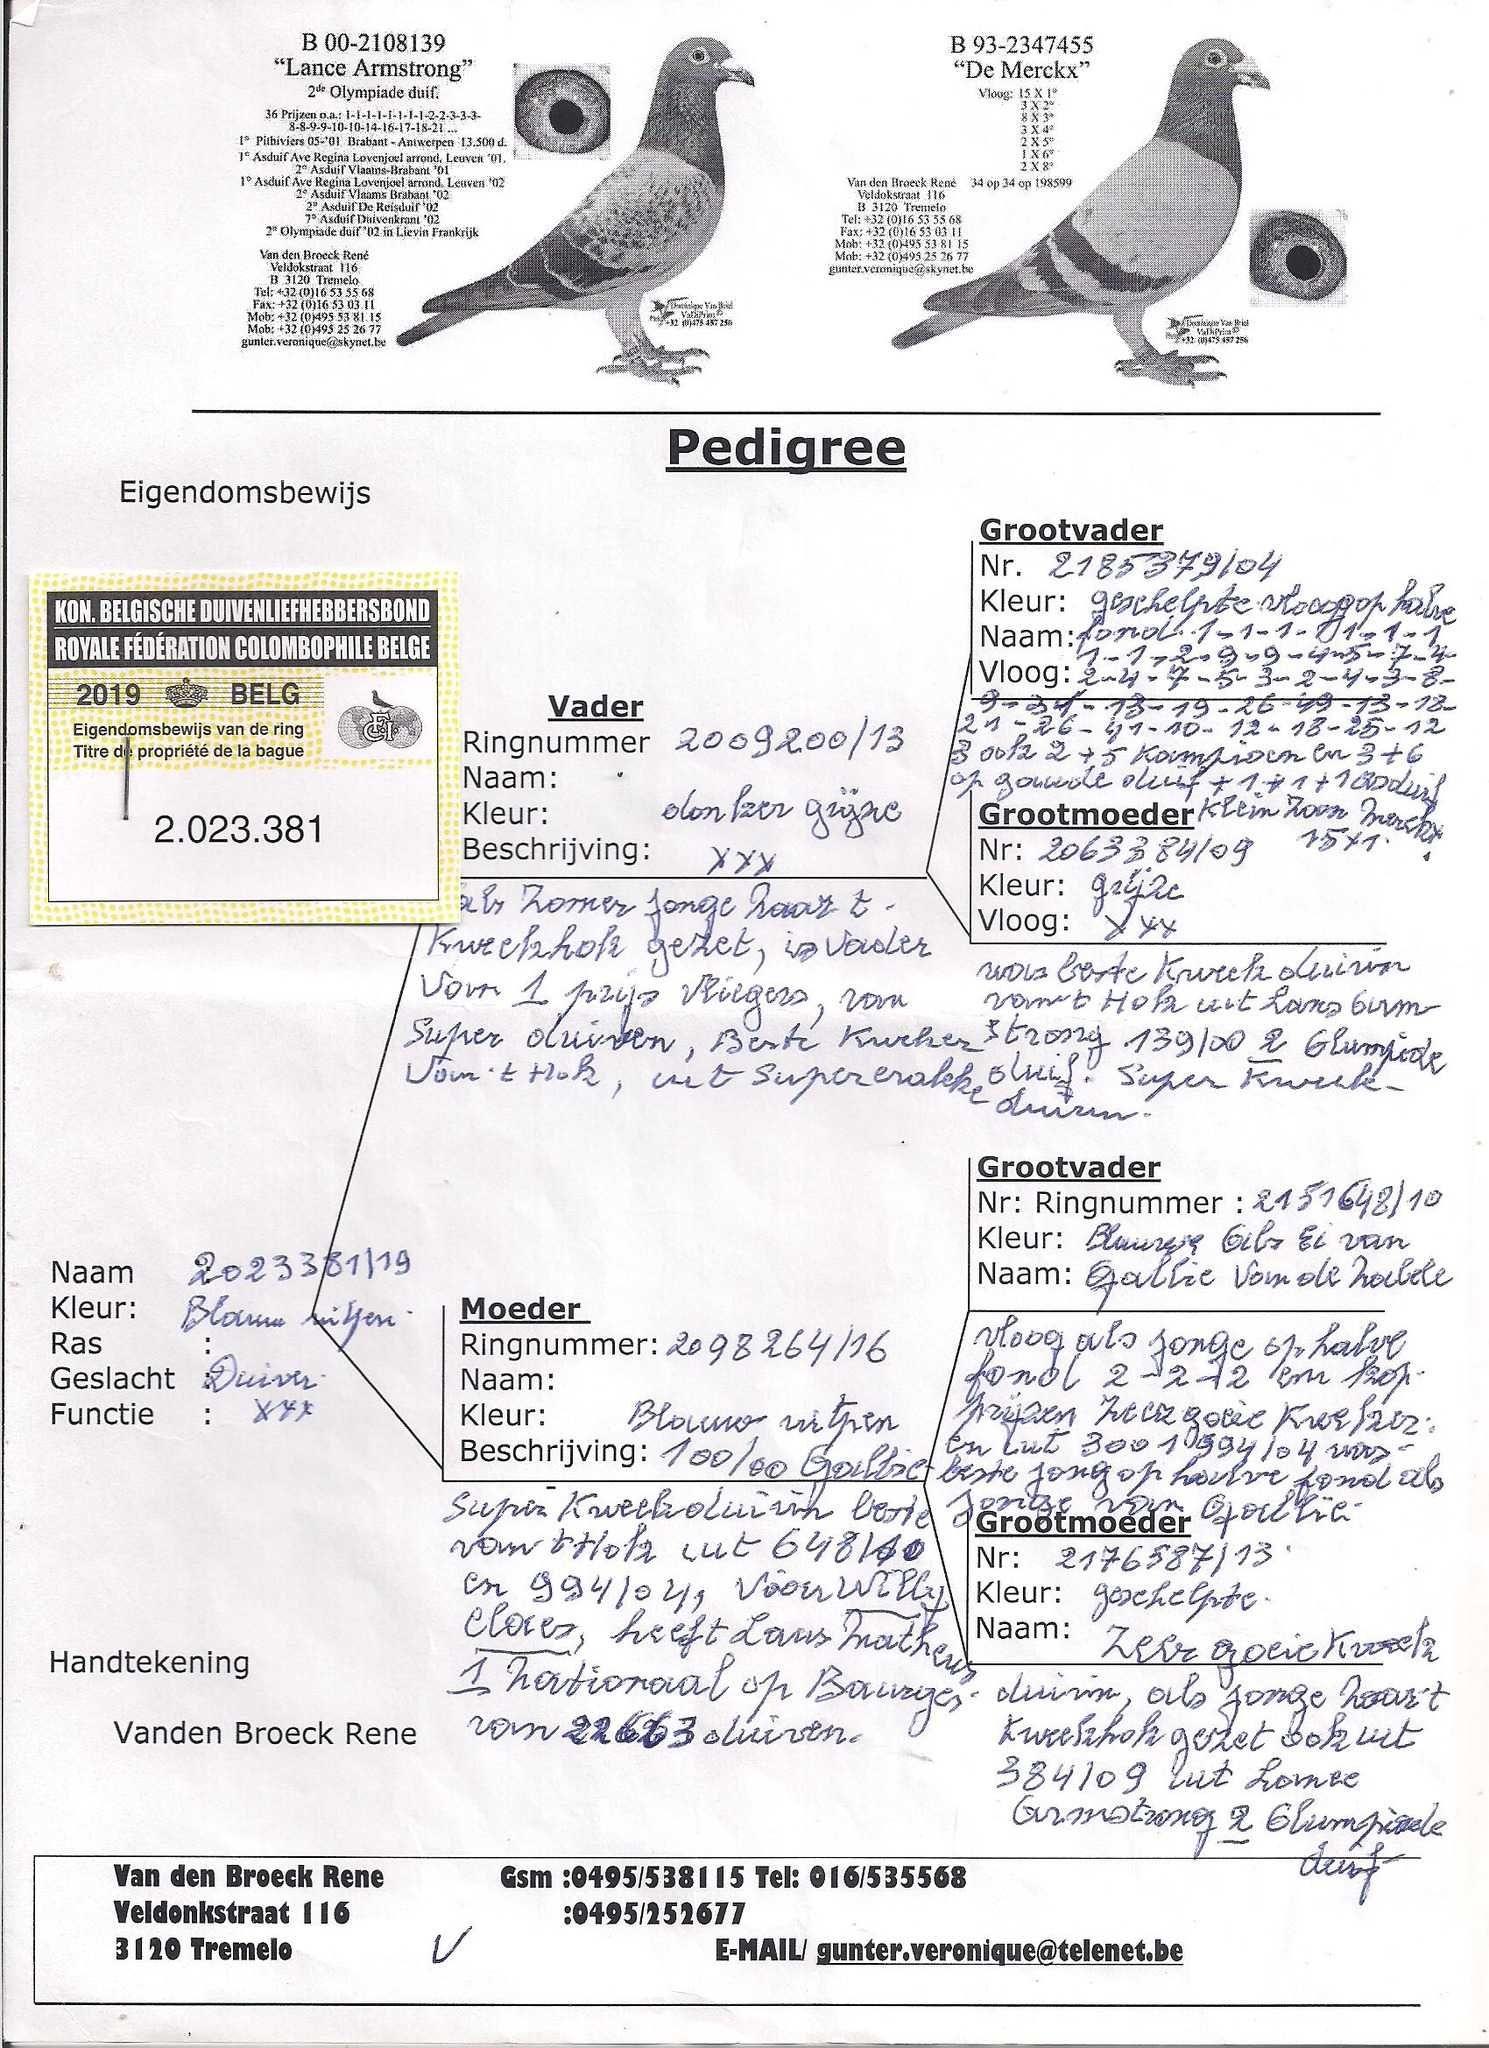 B 00-2108139
“Lance Armstrong”
2de Olympiade duif.
36 Prijzen o.a.: 1-1-1-1-1-1-1-2-2-3-3-3-
8-8-9-9-10-10-14-16-17-18-21 ...
1° Pithiviers 05-'01 Brabant - Antwerpen 13.500 d.
1° Asduif Ave Regina Lovenjoel arrond. Leuven '01.
2° Asduif Vlaams-Brabant '01
1° Asduif Ave Regina Lovenjoel arrond. Leuven '02
2° Asduif Vlaams Brabant '02
2° Asduif De Reisduif '02
7° Asduif Duivenkrant '02
2° Olympiade duif '02 in Lievin Frankrijk
Van den Broeck René
Veldokstraat 116
B 3120 Tremelo
Tel: +32 (0)16 53 55 68
Fax: +32 (0)16 53 03 11
Mob: +32 (0)495 53 81 15
Mob: +32 (0)495 25 26 77
gunter.veronique@skynet.be
Dominique Van Briel
VaDiPrint©
+32 (0)475 457 256
B 93-2347455
“De Merckx”
Vloog: 15 X 1°
3 X 2°
8 X 3°
3 X 4°
2 X 5°
1 X 6°
2 X 8°
34 op 34 op 198599
Van den Broeck René
Veldokstraat 116
B 3120 Tremelo
Tel: +32 (0)16 53 55 68
Fax: +32 (0)16 53 03 11
Mob: +32 (0)495 53 81 15
Mob: +32 (0)495 25 26 77
gunter.veronique@skynet.be
Dominique Van Briel
VaDiPrint©
+32 (0)475 457 256
Pedigree
Eigendomsbewijs
KON. BELGISCHE DUIVENLIEFHEBBERSBOND
ROYALE FÉDÉRATION COLOMBOPHILE BELGE
2019 BELG
Eigendomsbewijs van de ring
Titre de propriété de la bague
2.023.381
Grootvader
Nr. 2185379/04
Kleur: geschelpte vloog op halve
Naam: fond 1-1-1-1-1-1-1
1-1-2-9-9-4-5-7-4-
Vloog: 2-4-7-5-3-2-4-3-8-
9-34-13-19-26-49-13-18-
21-26-41-10-12-18-25-12
3 ook 2+5 Kampioen en 3+6
op goude duif +1+1+1 asduif
Klein Zoon Merckx
15x1.
Vader
Ringnummer 2009200/13
Naam:
Kleur: donker grijze
Beschrijving: xxx
als Zomer jonge naar t
Kweekhok gezet, is vader
Van 1 prijs vliegers, van
Super duiven, Beste Kweker
Van t Hok, uit Super
Grootmoeder
Nr: 2063384/09
Kleur: grijze
Vloog: xxx
was beste Kweek duivin
van t Hok uit Lans Arm-
strong 139/00 2 Olumpiede
duif. Super Kweek-
duivin.
Grootvader
Nr: Ringnummer : 2151648/10
Kleur: Blauwe Als Ei van
Naam: Gallie Van de
vloog als jonge op halve
fond 2-2-2 en kop-
prijzen zeer goeie Kweker.
en uit 3001994/04 was
beste jong op halve fond als
jonge van Gallie.
Naam 2023381/19
Kleur: Blauw witpen.
Ras :
Geslacht : Duivin.
Functie : xxx
Moeder
Ringnummer: 2098264/16
Naam:
Kleur: Blauw witpen
Beschrijving: 100/00 Gallie
Super Kweekduivin beste
van t Hok uit 648/10
en 994/04, Voor Willy
Claes, heeft Laus Matheus
1 Nationaal op Bourges.
van 22663 duiven.
Grootmoeder
Nr: 2176587/13
Kleur: geschelpte.
Naam: Zeer goeie Kweek
duivin, als jonge naar t
Kweekhok gezet ook uit
384/09 uit Lance
Armstrong 2 Olumpiade
duif
Handtekening
Vanden Broeck Rene
Van den Broeck Rene
Veldonkstraat 116
3120 Tremelo
Gsm :0495/538115 Tel: 016/535568
:0495/252677
E-MAIL/ gunter.veronique@telenet.be